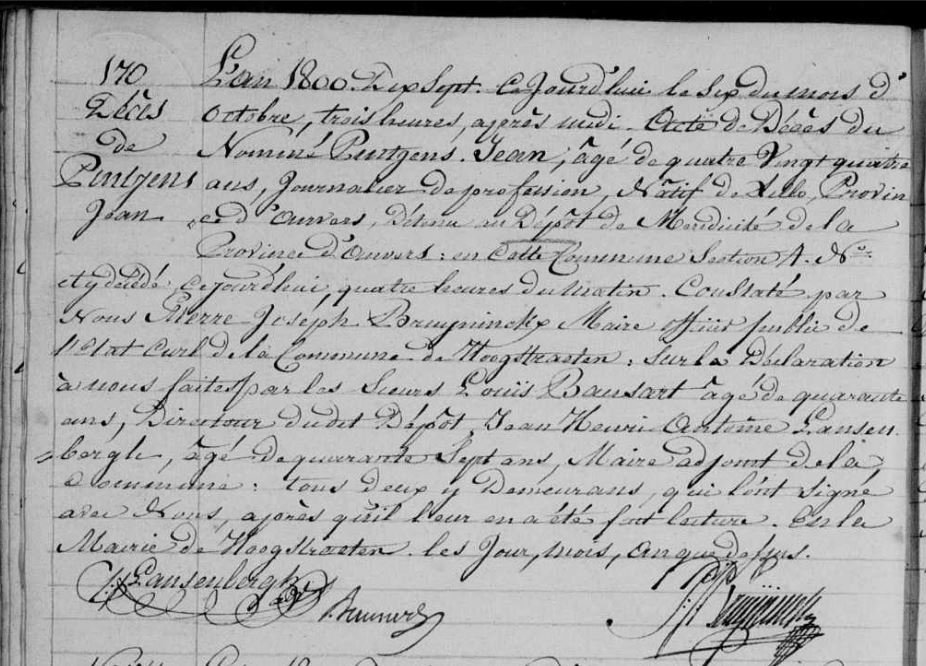 170
Décès
de
Pentgens
Jean
L'an 1800. Dix Sept. Ce Jourd'hui le six du mois d'
Octobre, trois heures, après midi. Acte de Décès du
Nommé Pentgens. Jean, âgé de quatre Vingt quatre
ans, Journalier de profession, Nâtif de Lillo, Provin
ce d'Anvers, Détenu au Dépôt de Mendicité de la
Province d'Anvers: en Cette Commune Section A. No.
et y décédé, Ce jourd'hui quatre heures du Matin. Constaté par
Nous Pierre Joseph Bruyninckx Maire officier public de
l'Etat Civil de la Commune de Hoogstraeten: Sur la Déclaration
à nous faites par les Sieurs Louïs Bausart âgé de quarante
ans, Directeur du dit Dépôt, Jean Henri Antoine Lansen
bergh, âgé de quarante Sept ans, Maire adjoint de la
Commune: tous deux y Demeurans, qui l'ont Signé
avec Nous, après qu'il leur en a été fait lecture. En la
Mairie de Hoogstraeten. les Jour, mois, an que dessus.
Lansenbergh